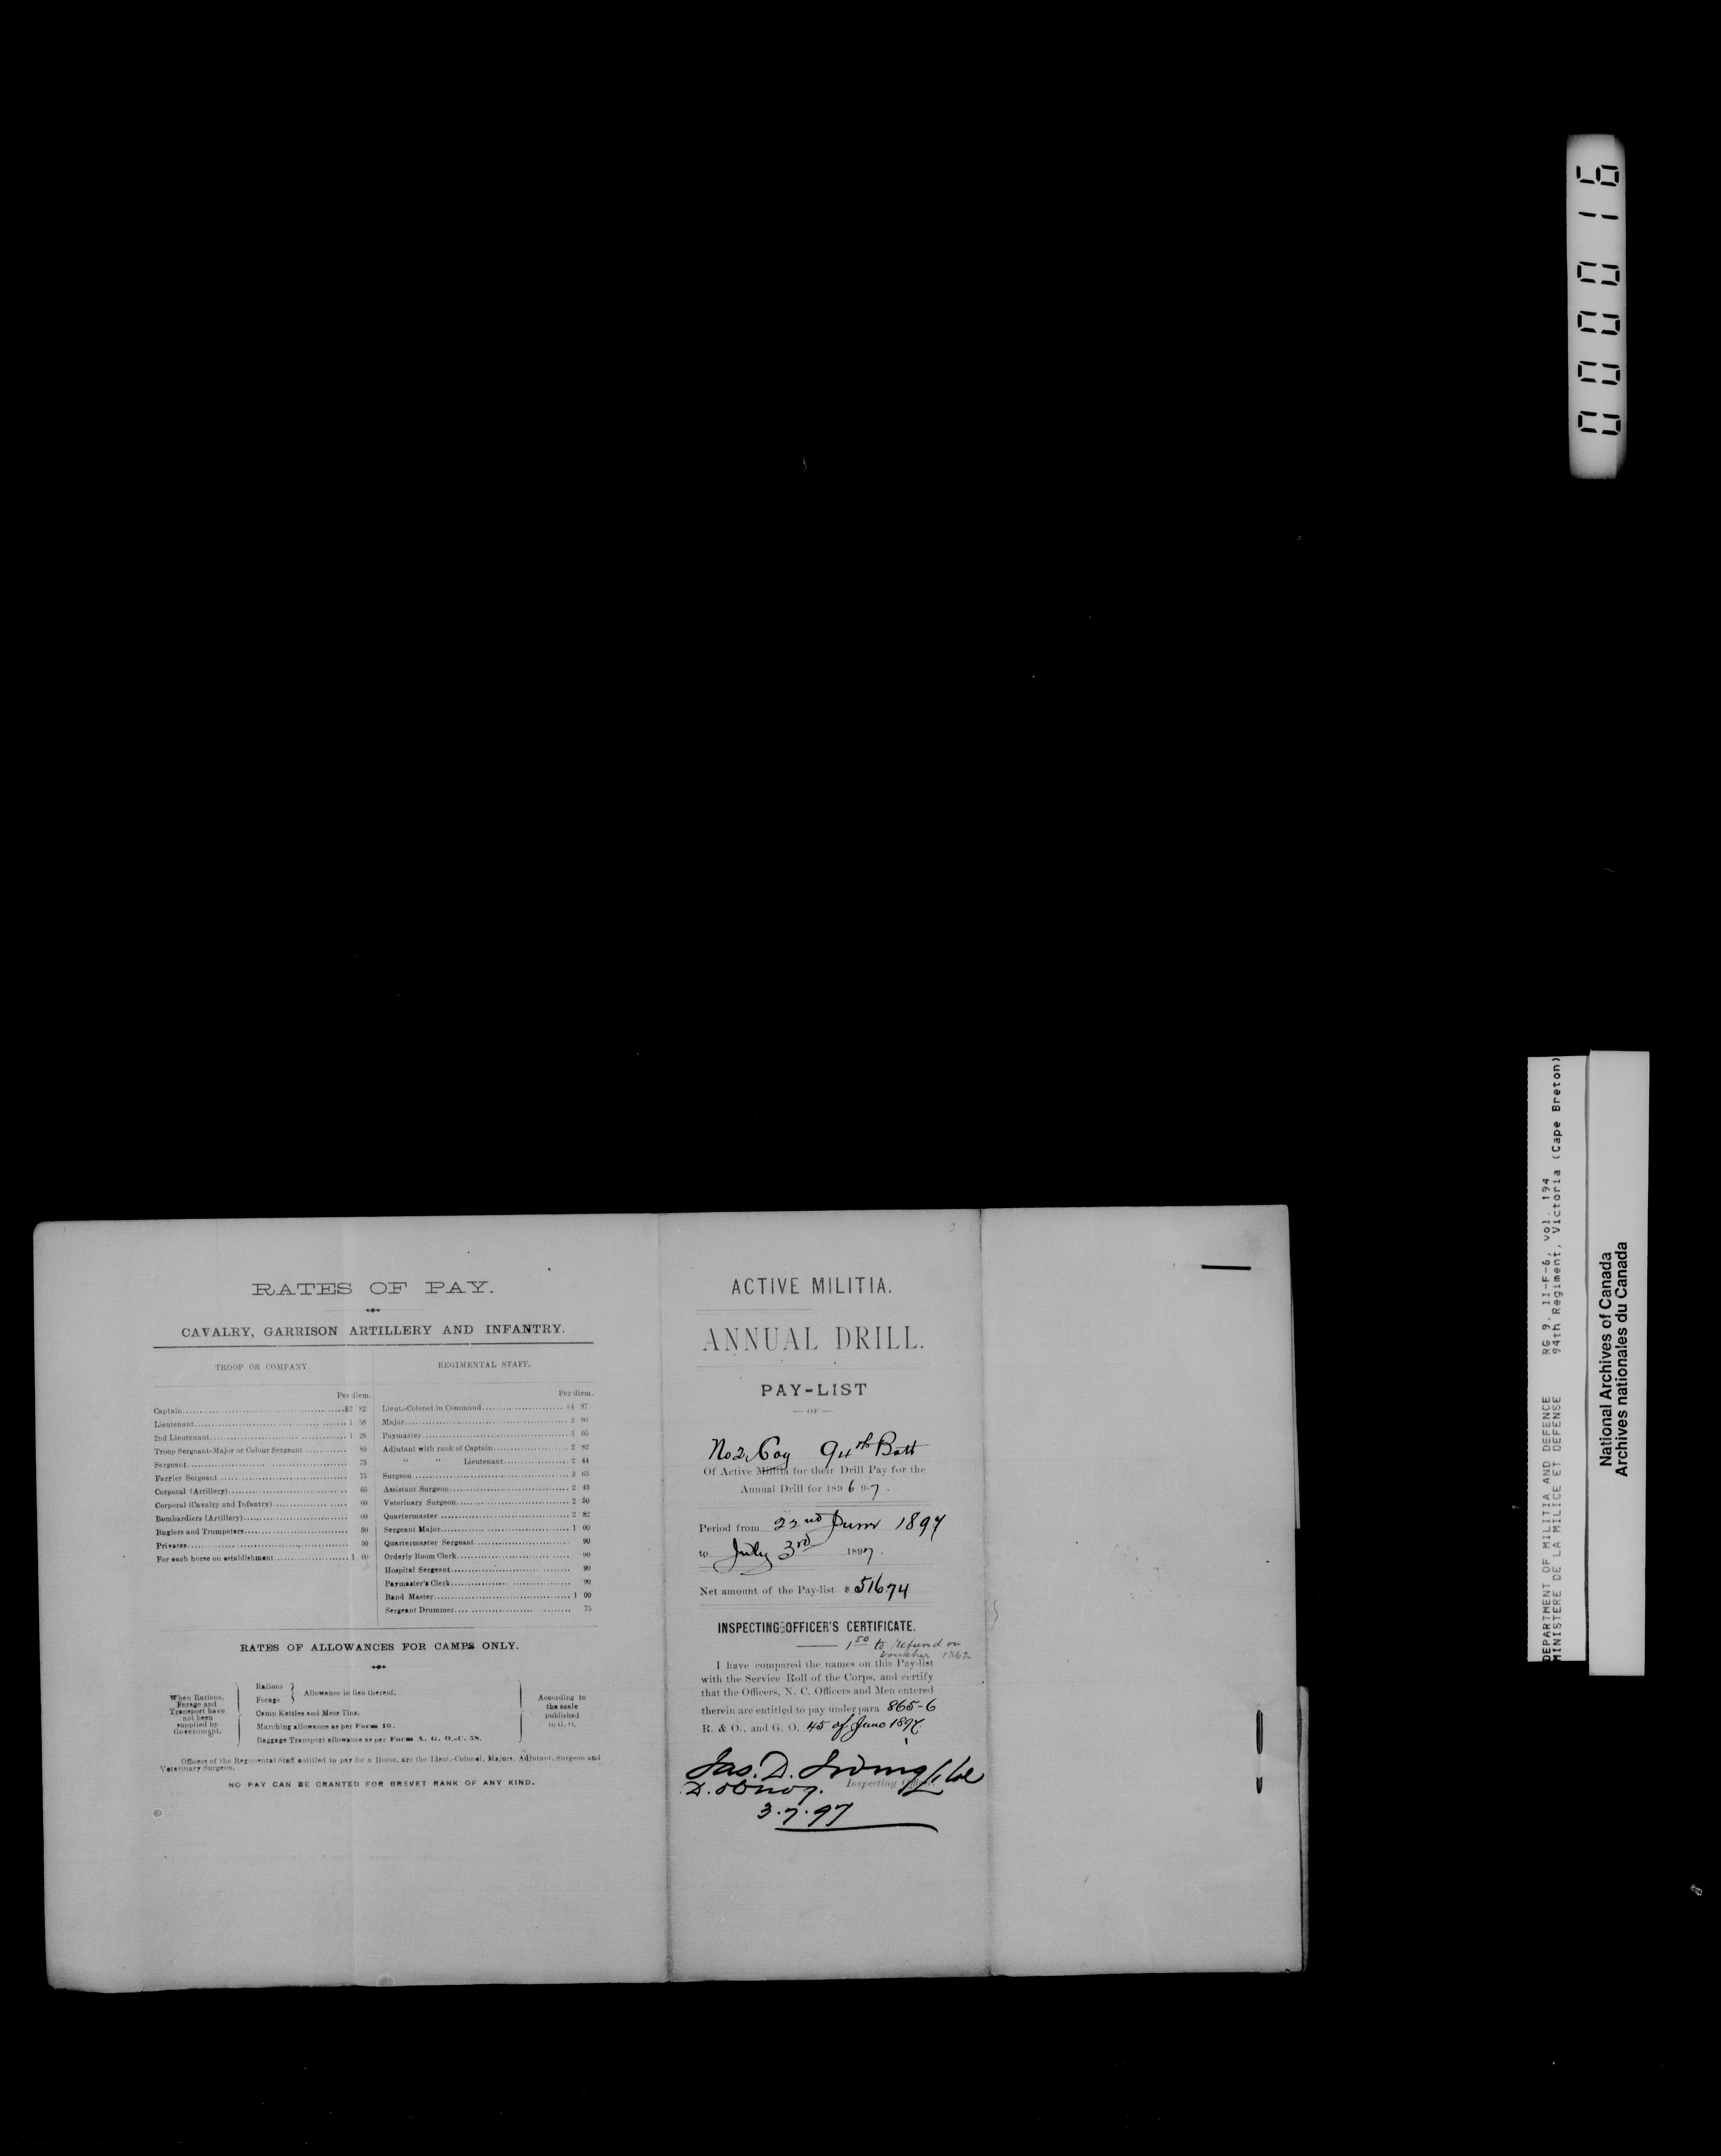 RATES OF PAY.
CAVALRY, GARRISON ARTILLERY AND INFANTRY.
TROOP OR COMPANY.
Per diem.
Captain $2 82
Lieutenant 1 58
2nd Lieutenant 1 28
Troop Sergeant-Major or Colour Sergeant 80
Sergeant 75
Farrier Sergeant 75
Corporal (Artillery) 65
Corporal (Cavalry and Infantry) 60
Bombardiers (Artillery) 60
Buglers and Trumpeters 50
Privates 50
For each horse on establishment 1 00
REGIMENTAL STAFF.
Per diem.
Lieut.-Colonel in Command $4 87
Major 3 90
Paymaster 3 05
Adjutant with rank of Captain 2 82
" " Lieutenant 2 44
Surgeon 3 65
Assistant Surgeon 2 43
Veterinary Surgeon 2 50
Quartermaster 2 82
Sergeant Major 1 00
Quartermaster Sergeant 90
Orderly Room Clerk 90
Hospital Sergeant 90
Paymaster's Clerk 90
Band Master 1 00
Sergeant Drummer 75
RATES OF ALLOWANCES FOR CAMPS ONLY.
When Rations,
Forage and
Transport have
not been
supplied by
Government.
Rations
Forage
Allowance in lieu thereof.
Camp Kettles and Mess Tins.
Marching allowance as per Form 10.
Baggage Transport allowance as per Form A. G. O.-C. 58.
According to
the scale
published
in G. O.
Officers of the Regimental Staff entitled to pay for a Horse, are the Lieut.-Colonel, Majors, Adjutant, Surgeon and
Veterinary Surgeon.
NO PAY CAN BE GRANTED FOR BREVET RANK OF ANY KIND.
ACTIVE MILITIA.
ANNUAL DRILL.
PAY-LIST
— OF —
No 2 Coy 94th Batt
Of Active Militia for their Drill Pay for the
Annual Drill for 1896 97.
Period from 22nd June 1897
to July 3rd 1897.
Net amount of the Pay-list $ 516.74
INSPECTING OFFICER'S CERTIFICATE.
1 50 to refund on
voucher 1362
I have compared the names on this Pay-list
with the Service Roll of the Corps, and certify
that the Officers, N. C. Officers and Men entered
therein are entitled to pay under para 865-6
R. & O., and G. O. 45 of June 1897.
Jas. D. Irving Lt Col
Inspecting Officer
3.7.97
000016
DEPARTMENT OF MILITIA AND DEFENCE RG 9, II-F-6, vol. 194
MINISTERE DE LA MILICE ET DEFENSE 94th Regiment, Victoria (Cape Breton)
National Archives of Canada
Archives nationales du Canada